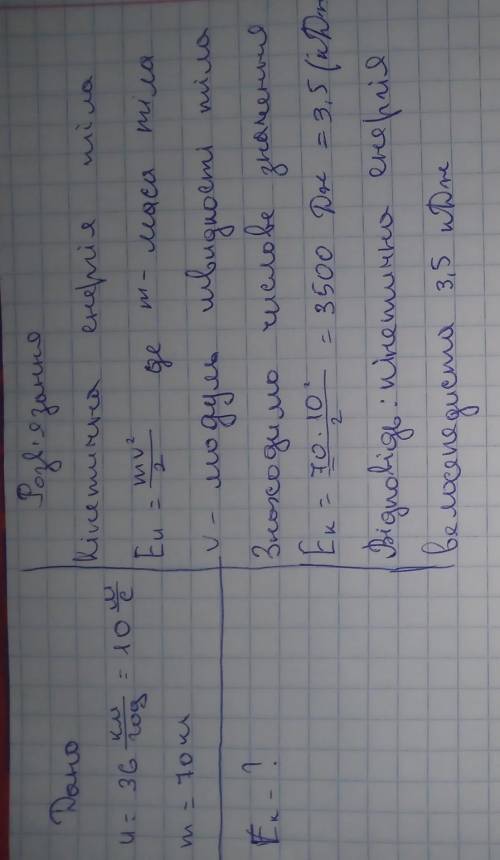 Дано
u = 36 км/год = 10 м/с
m = 70 кг
Eк - ?
Розв'язання
Кінетична енергія тіла
Eк = mv²/2 де m - маса тіла
v - модуль швидності тіла
Знаходимо числове значення
Eк = 70 · 10²/2 = 3500 Дж = 3,5 (кДж
Відповідь: кінетична енергія
велосепедиста 3,5 кДж